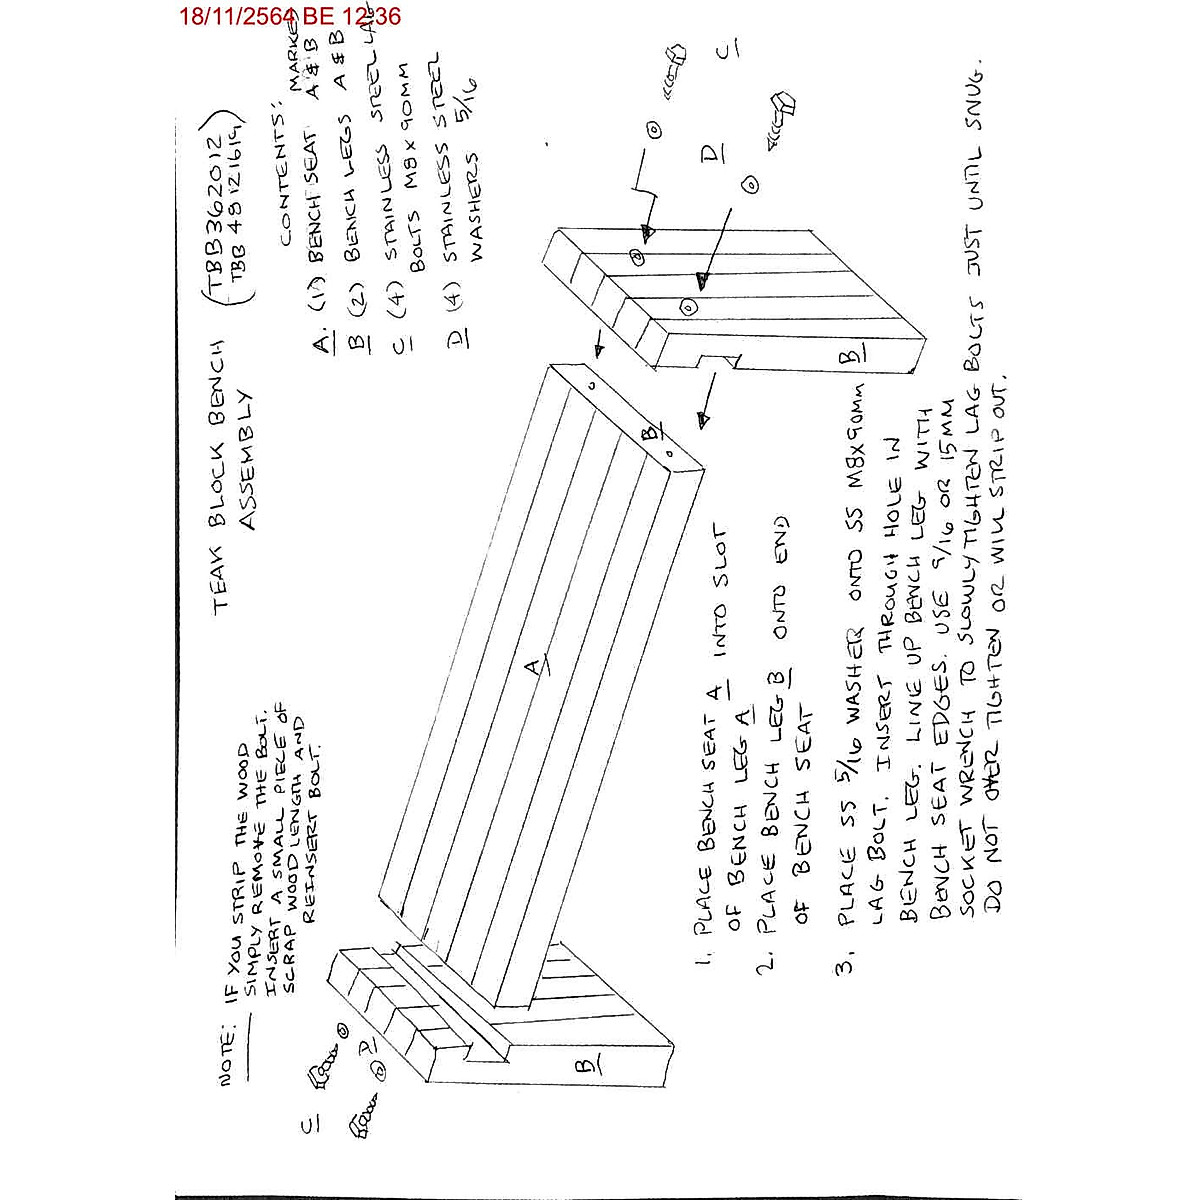 18/11/2564 BE 12:36
TEAK BLOCK BENCH (TBB362012
ASSEMBLY TBB48121619)
CONTENTS: MARKED
A. (1) BENCH SEAT A & B
B (2) BENCH LEGS A & B
C (4) STAINLESS STEEL LAG
BOLTS M8 X 90MM
D (4) STAINLESS STEEL
WASHERS 5/16
NOTE: IF YOU STRIP THE WOOD
SIMPLY REMOVE THE BOLT.
INSERT A SMALL PIECE OF
SCRAP WOOD LENGTH AND
REINSERT BOLT.
C
D
B
B
A
B
C
D
1. PLACE BENCH SEAT A INTO SLOT
OF BENCH LEG A
2. PLACE BENCH LEG B ONTO END
OF BENCH SEAT
3. PLACE SS 5/16 WASHER ONTO SS M8X90MM
LAG BOLT. INSERT THROUGH HOLE IN
BENCH LEG. LINE UP BENCH LEG WITH
BENCH SEAT EDGES. USE 9/16 OR 15MM
SOCKET WRENCH TO SLOWLY TIGHTEN LAG BOLTS JUST UNTIL SNUG.
DO NOT OVER TIGHTEN OR WILL STRIP OUT.